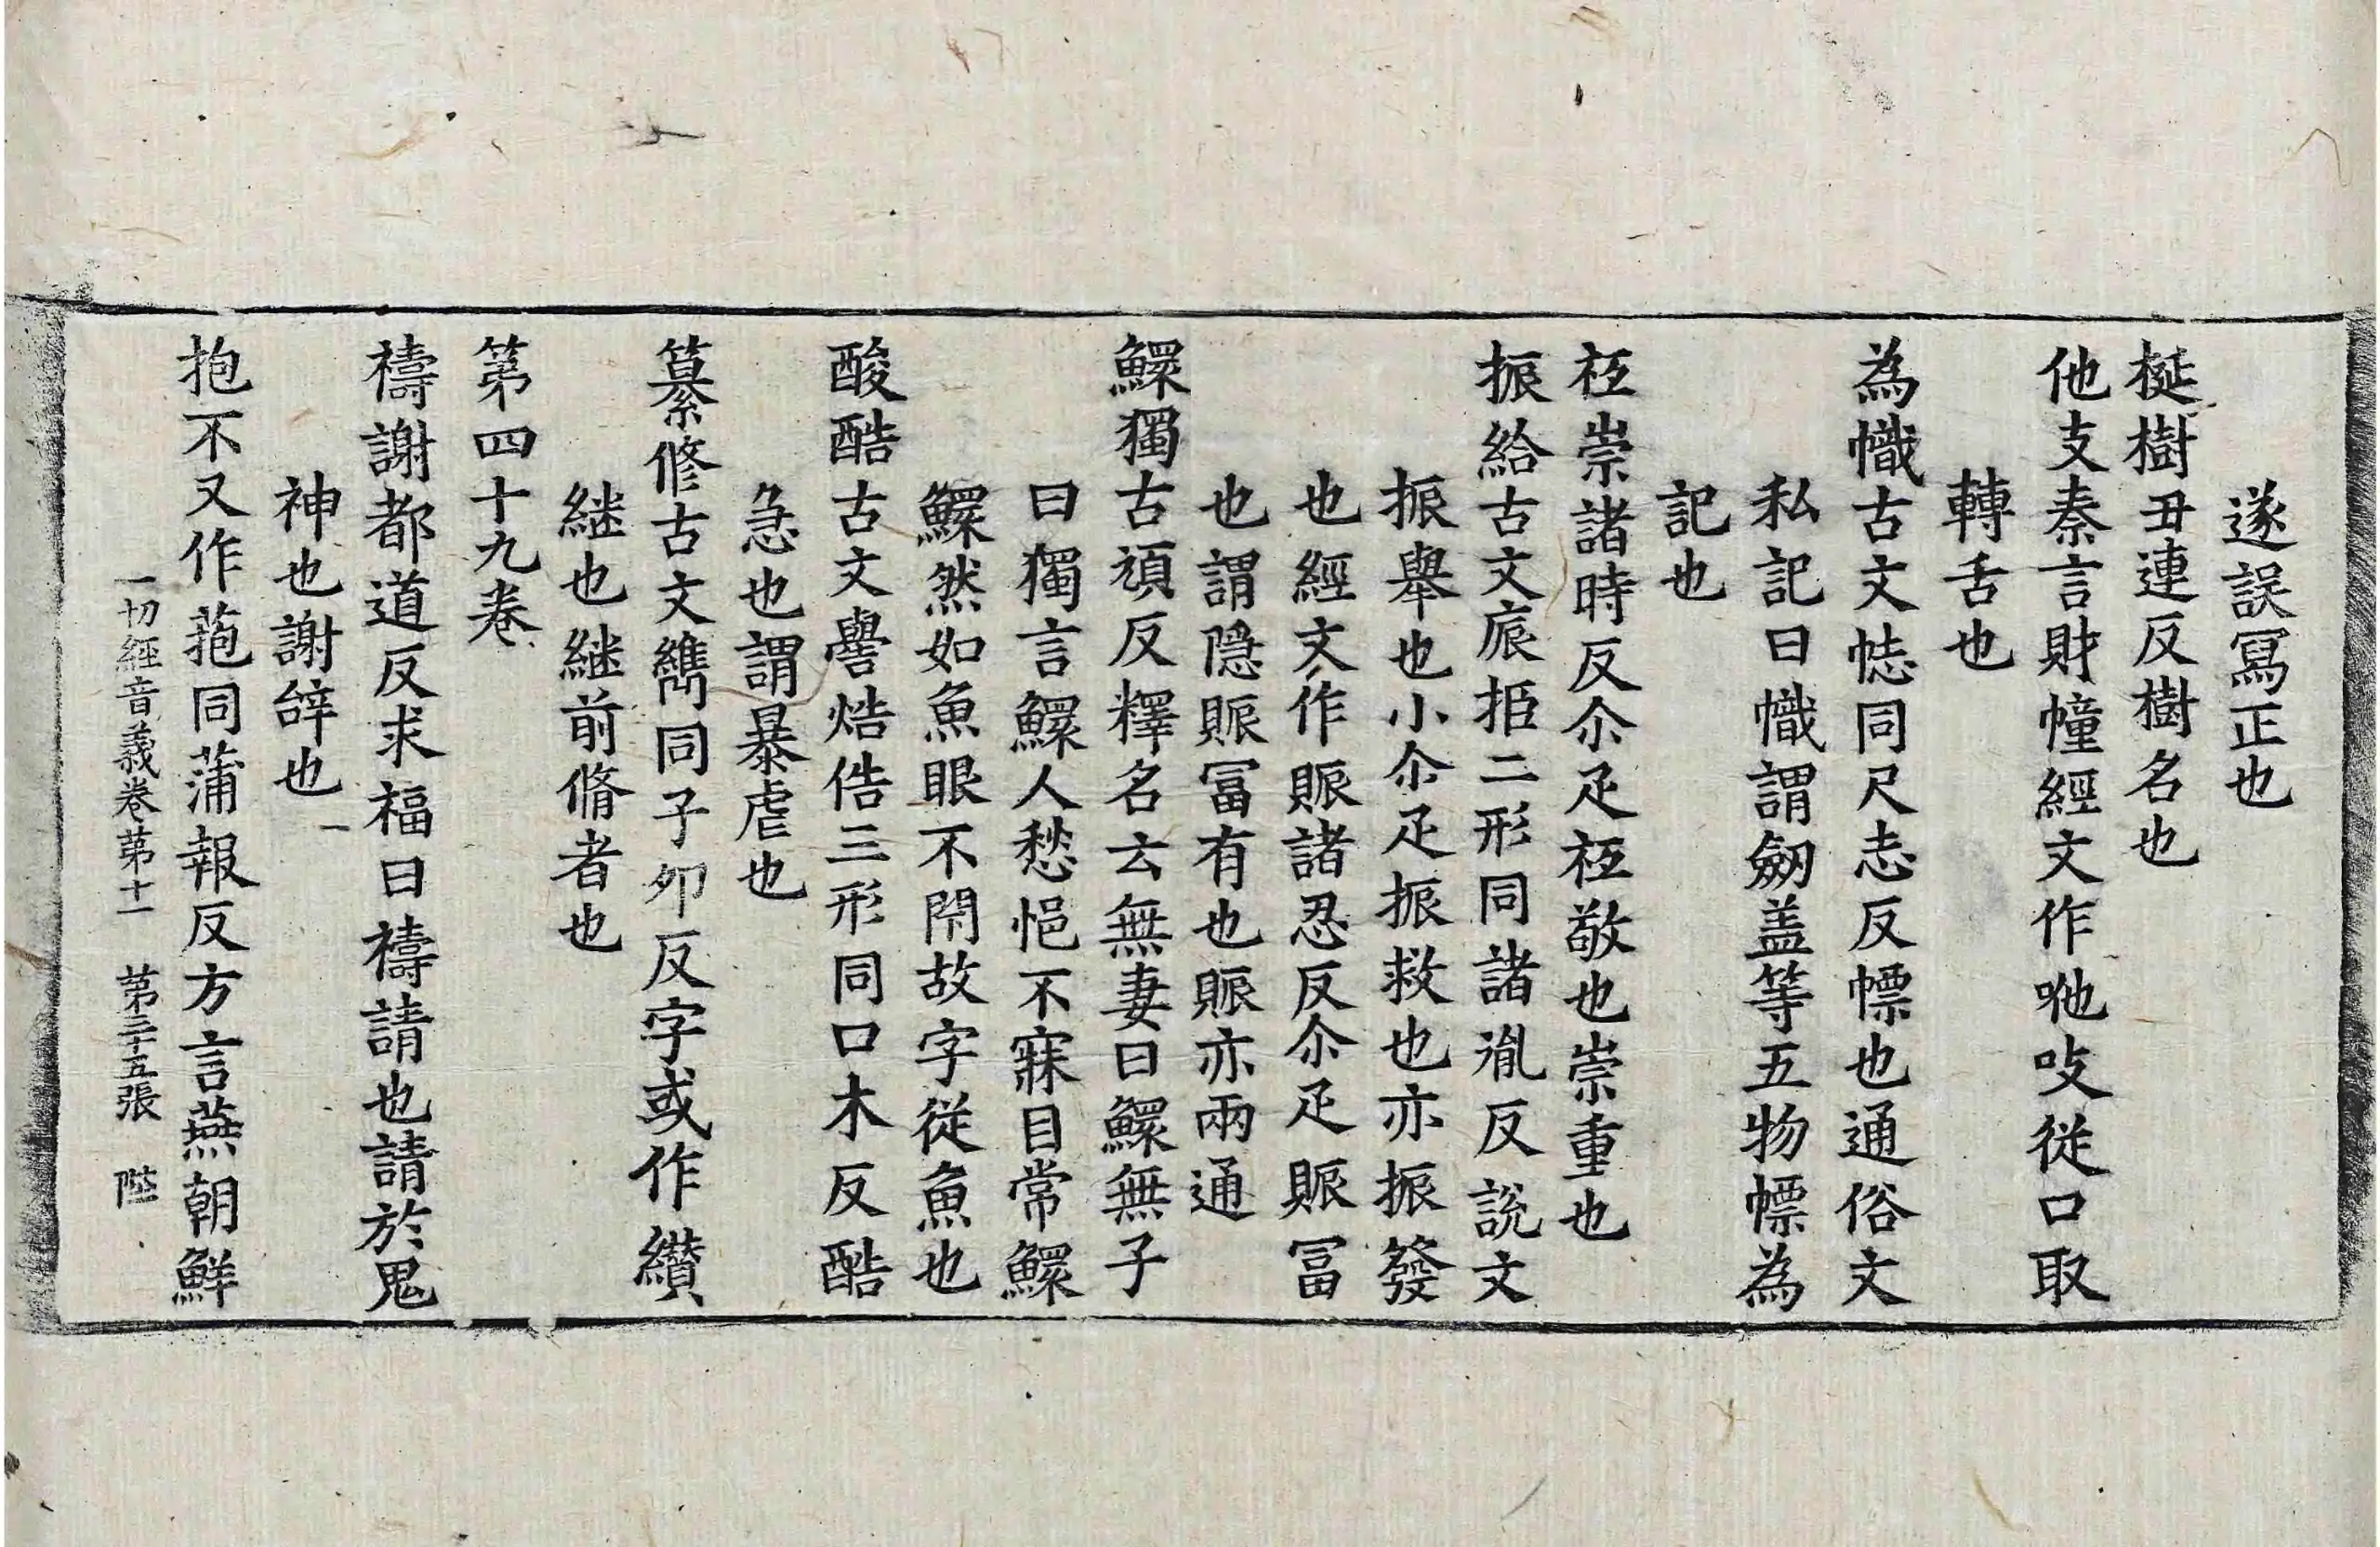 遂誤冩正也
梴樹丑連反樹名也
他支秦言財幢經文作吔吱従口取
轉舌也
為幟古文㤅同尺志反幖也通俗文
私記曰幟謂劒盖等五物幖為
記也
祗崇諸時反尒疋祗敬也崇重也
振給古文宸拒二形同諸胤反說文
振舉也小尒疋振救也亦振發
也經文作賑諸忍反尒疋賑冨
也謂隠賑冨有也賑亦兩通
鰥獨古頑反釋名云無妻曰鰥無子
曰獨言鰥人愁悒不寐目常鰥
鰥然如魚眼不閇故字従魚也
酸酷古文嚳焅俈三形同口木反酷
急也謂暴虐也
纂修古文䌣同子夘反字或作纉
継也継前脩者也
第四十九卷
禱謝都道反求福曰禱請也請於鬼
神也謝辝也
抱不又作菢同蒲報反方言燕朝鮮
一切經音義卷第十一　第三十五張　陛